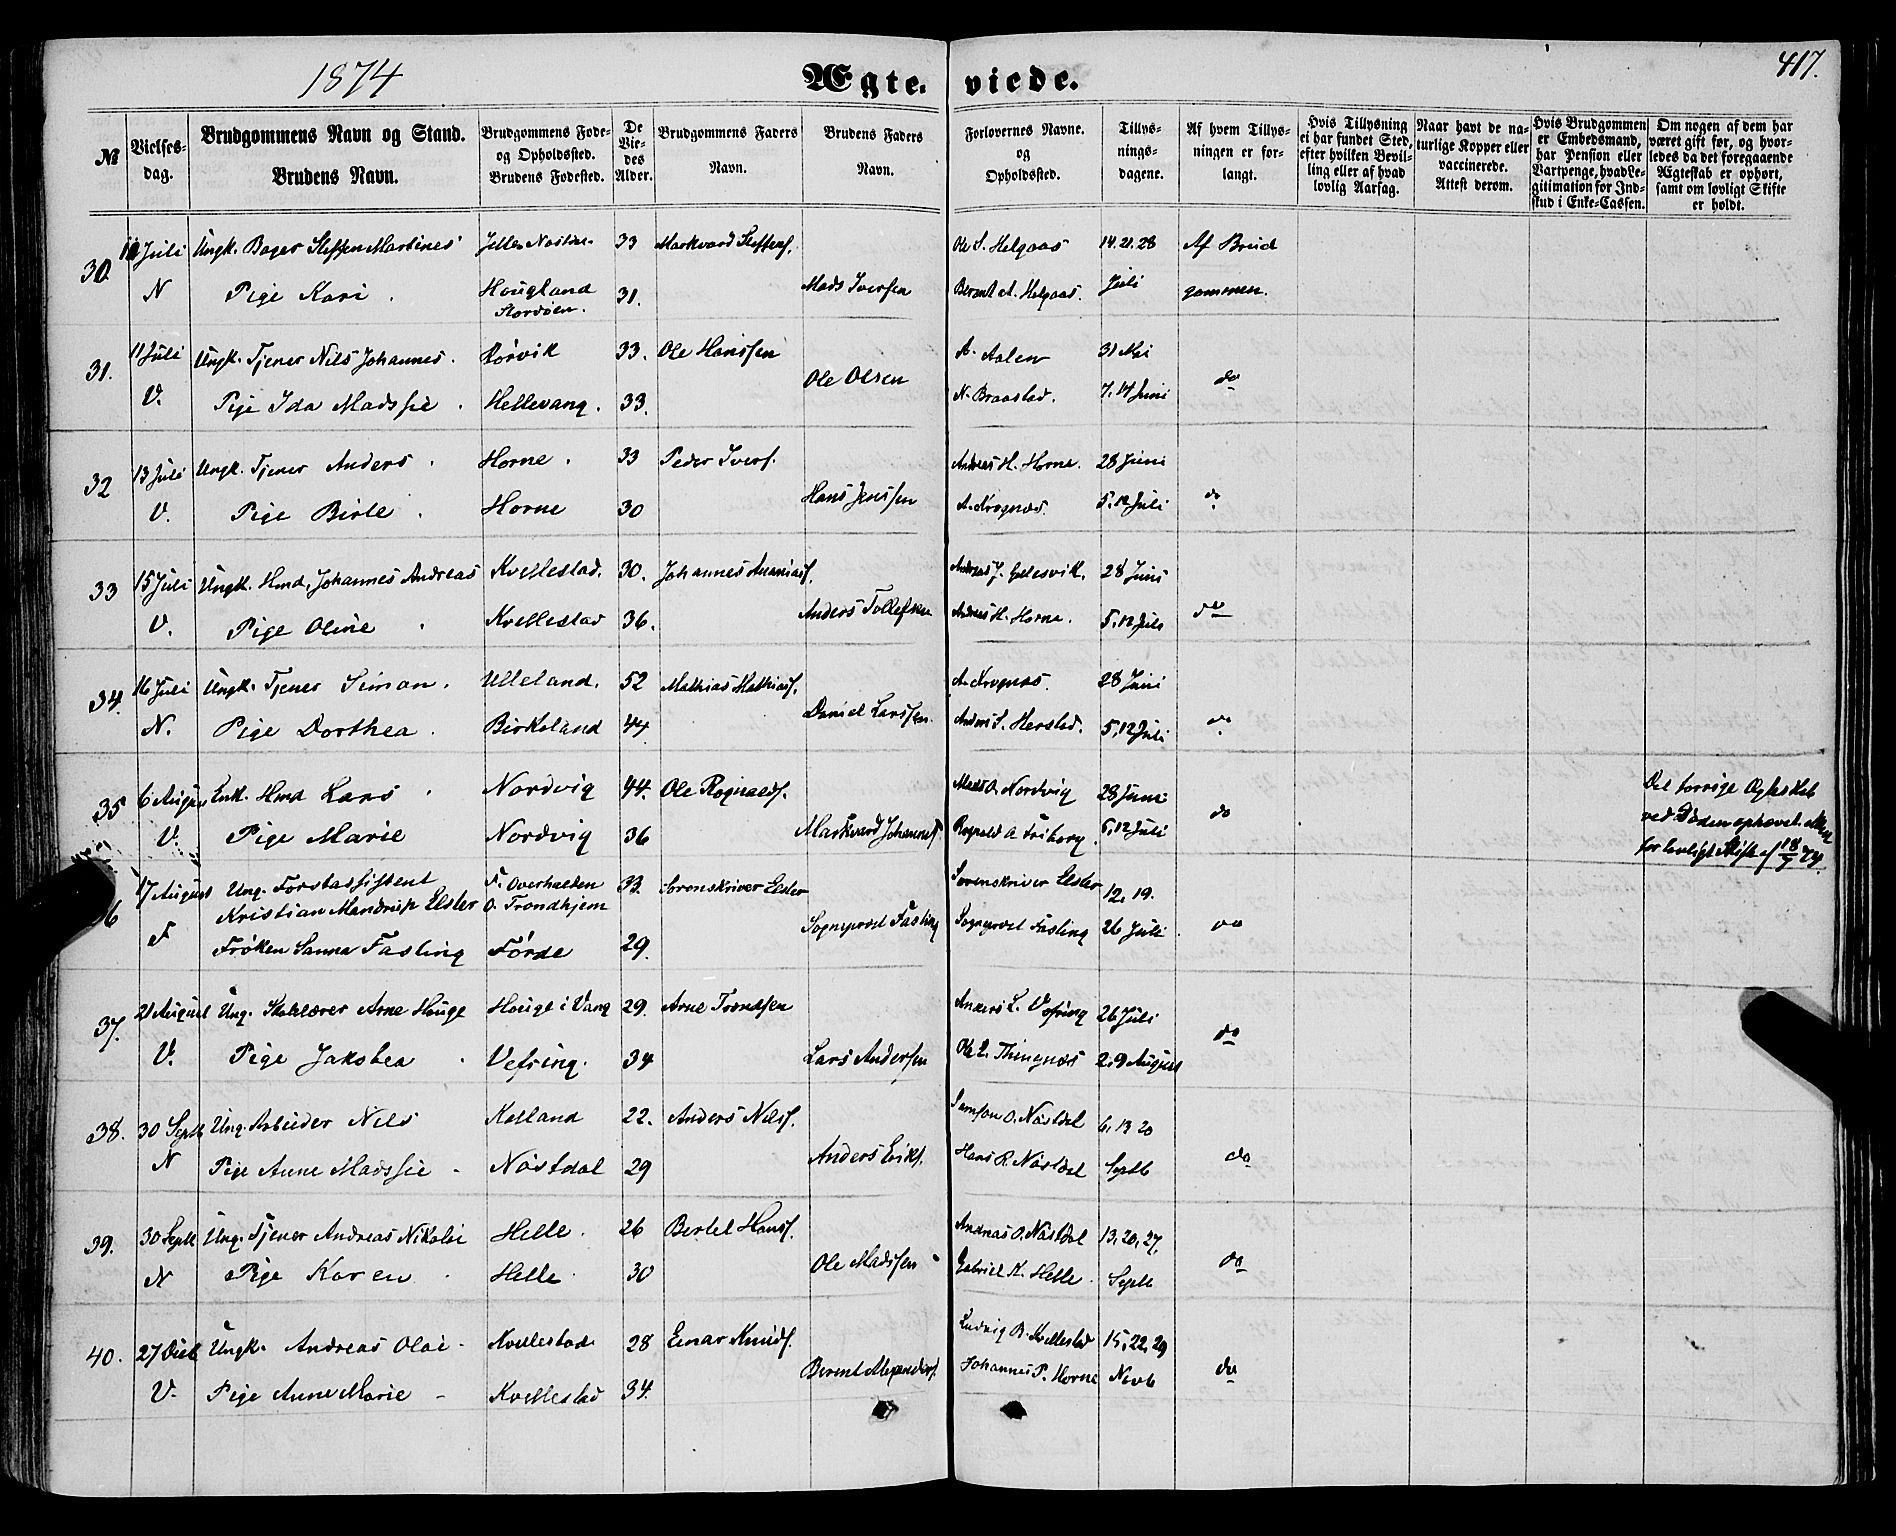 1874
Ægte. viede.
417.
№
Vielses-
dag.
Brudgommens Navn og Stand.
Brudens Navn.
Brudgommens Føde-
og Opholdssted.
Brudens Fødested.
De
Vie-
des
Alder.
Brudgommens Faders
Navn.
Brudens Faders
Navn.
Forlovernes Navne.
og
Opholdssted.
Tillys-
nings-
dagene.
Af hvem Tillys-
ningen er for-
langt.
Hvis Tillysning
ei har fundet Sted,
efter hvilken Bevil-
ling eller af hvad
lovlig Aarsag.
Naar havt de na-
turlige Kopper eller
vaccinerede.
Attest derom.
Hvis Brudgommen
er Embedsmand,
har Pension eller
Vartpenge, hvad Le-
gitimation for Ind-
skud i Enke-Cassen.
Om nogen af dem har
været gift før, og hvor-
ledes da det foregaaende
Ægteskab er ophørt,
samt om lovligt Skifte
er holdt.
30. Juli Ungk. Bager Steffen Martines 33 Markvard Steffens. Ole S. Helgaas 14. 21. 28 Af Brud
N Pige Kari . Hougland 31. Mads Iversen Berent A. Helgaas. Juli gommen.
Stordøen.
31. 11 Juli Ungk. Tjener Nils Johannes. Rörvik 33. Ole Hanssen A. Aalen 31 Mai
V. Pige Ida Madssie . Hellevang. 33. Ole Olsen N. Braastad. 7, 14 Juni do
32 13 Juli Ungk. Tjener Anders . Horne . 33 Peder Ivers. Andreas H. Horne. 28 Juni
V. Pige Birte . Horne 30 Hans Jenssen A. Krognæs. 5, 12 Juli do
33 15 Juli Ungk. Hmd. Johannes Andreas Kvellestad. 30. Johannes Ananias. Andreas J. 28 Juni
V. Pige Oline . Kvellestad 36. Anders Tollefsen Andreas H. Horne. 5, 12 Juli do
34. 16 Juli Ungk. Tjener Simon . Ulleland. 52 Mathias Mathias. A. Krognæs. 28 Juni
N. Pige Dorthea . Birkeland 44 Daniel Larssen. Anders S. Herstad. 5, 12 Juli do
35 6 August Enk. Hmd Lars . Nordvig 44. Ole Rognalds. Mads O. Nordvig 28 Juni Det forrige Ægteskab
V. Pige Marie Nordvig 36 Markvard Johannes. Rognald A. Friborg. 5, 12 Juli do ved Døden ophævet.
for lovligt Skifte af 18/7 74.
6 17 August Ung. Forstassistent F. Overhalden 33. Sorenskriver Elster Sorenskriver Elster 12, 19.
Kristian Mandrup Elster O. Trondhjem
F Frøken Sanna Fasting Förde 29. Sogneprest Fasting Sogneprest Fasting 26 Juli do
37. 21 August Ung. Skolelærer Arne Hauge Houge i Vang 29. Arne Trondsen Anders L. Vefring 26 Juli
V. Pige Jakobea . Vefring. 34 Lars Andersen Ole L. Thingnæs 2, 9 August do
38. 30 Septb Ung. Arbeider Nils Kalland 22. Anders Nils. Samson O. Nöstdal 6, 13 20
N Pige Anne Madssie . Nöstdal 29 Anders Eriks. Hans R. Nöstdal Septb do
39. 30 Septb Ung. Tjener Andreas Nikolai Helle . 26 Bertel Hans. Andreas O. Nöstdal 13, 20, 27,
N Pige Karen . Helle . 30 Ole Madssen Gabriel K. Helle . Septb do
40. 27 Ungk. Andreas Olai . Kvellestad 28 Einar Knuds. Ludvig B. Kvellestad 15, 22, 29
V. Pige Anne Marie . Kvellestad 34. Berent Alexanders. Johannes P. Horne Novb do